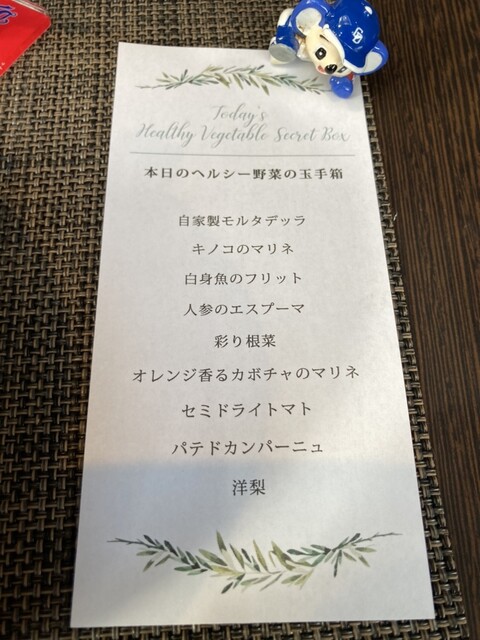 Today's
Healthy Vegetable Secret Box
本日のヘルシー野菜の玉手箱
自家製モルタデッラ
キノコのマリネ
白身魚のフリット
人参のエスプーマ
彩り根菜
オレンジ香るカボチャのマリネ
セミドライトマト
パテドカンパーニュ
洋梨